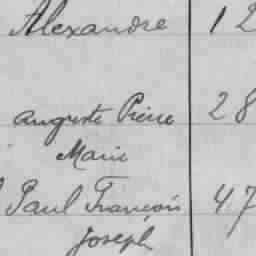 Alexandre 12
Auguste Pierre 28
Marie
Paul François 47
Joseph